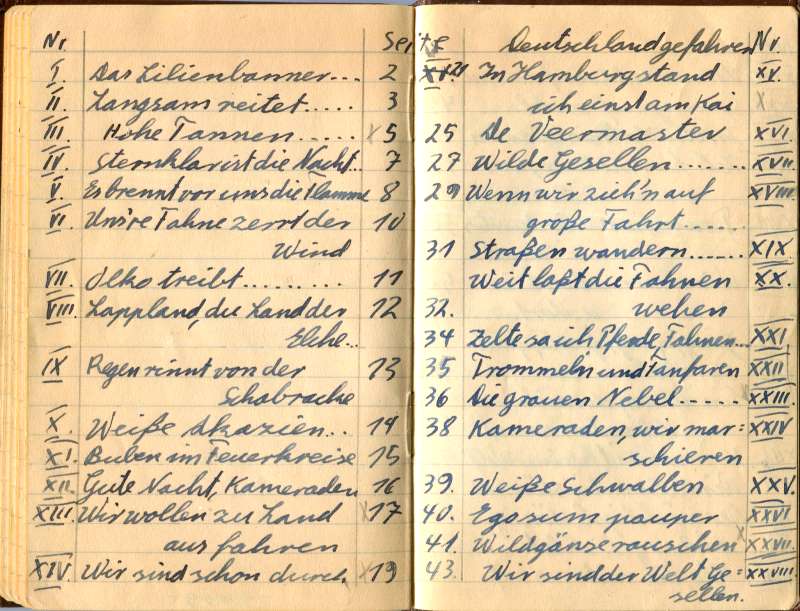 Nr. Seite
I. Das Lilienbanner... 2
II. Langsam reitet..... 3
III. Hohe Tannen..... x 5
IV. Sternklar ist die Nacht... 7
V. Es brennt vor uns die Flamme 8
VI. Uns're Fahne zerrt der 10
Wind
VII. Olko treibt......... 11
VIII. Lappland, du Land der 12
Elche...
IX Regen rinnt von der 13
Schabracke
X. Weiße Akazien... 14
XI. Buben im Feuerkreise 15
XII. Gute Nacht, Kameraden 16
XIII. Wir wollen zu Land x 17
ausfahren
XIV. Wir sind schon durch x 19
Deutschland gefahren Nr.
21 In Hamburg stand XV.
ich einst am Kai x
25 De Veermaster XVI.
27 Wilde Gesellen....... XVII.
29 Wenn wir zieh'n auf XVIII.
große Fahrt......
31 Straßen wandern...... XIX.
Weit laßt die Fahnen XX.
32. wehen
34 Zelte sah ich Pferde, Fahnen... XXI
35 Trommeln und Fanfaren XXII
36 Die grauen Nebel..... XXIII.
38 Kameraden, wir mar= XXIV
schieren
39. Weiße Schwalben XXV.
40. Ego sum pauper XXVI
41. Wildgänse rauschen x XXVII.
43. Wir sind der Welt Ge= XXVIII
sellen.